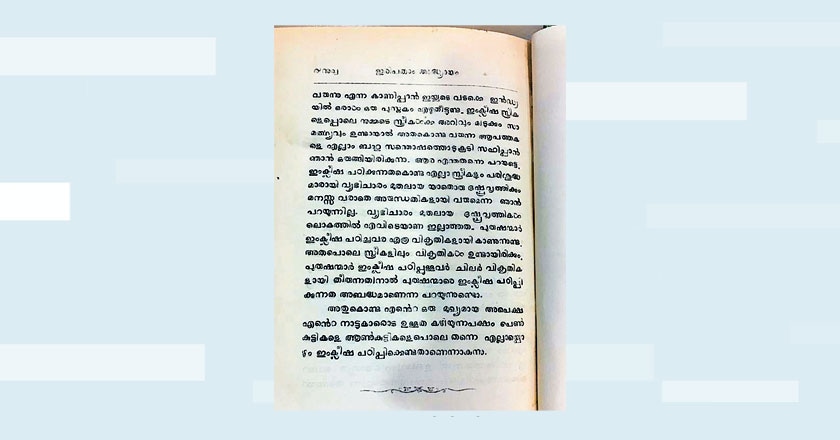 ഇരുപതാം അദ്ധ്യായം
വരുന്നു എന്നു കാണിപ്പാൻ ഇയ്യടെ വടക്കെ ഇൻഡ്യ
യിൽ ഒരാൾ ഒരു പുസ്തകം എഴുതീട്ടുണ്ടു. ഇംക്ലീഷ സ്ത്രീക
ളെപ്പോലെ നമ്മുടെ സ്ത്രീകൾക്കു അറിവും മിടുക്കും സാ
മൎത്ഥ്യവും ഉണ്ടായാൽ അതകൊണ്ടു വരുന്ന ആപത്തുക
ളെ എല്ലാം ബഹു സന്തോഷത്തോടുകൂടി സഹിപ്പാൻ
ഞാൻ ഒരുങ്ങിയിരിക്കുന്നു. ആര എന്തുതന്നെ പറയട്ടെ.
ഇംക്ലീഷ പഠിക്കുന്നതകൊണ്ടു എല്ലാ സ്ത്രീകളും പരിശുദ്ധ
മാരായി വ്യഭിചാരം മുതലായ യാതൊരു ദുഷ്പ്രവൃത്തിക്കും
മനസ്സു വരാതെ അരുന്ധതികളായി വരുമെന്നു ഞാൻ
പറയുന്നില്ല. വ്യഭിചാരം മുതലായ ദുഷ്പ്രവൃത്തികൾ
ലോകത്തിൽ എവിടെയാണ ഇല്ലാത്തത. പുരുഷന്മാർ
ഇംക്ലീഷ പഠിച്ചവര എത്ര വികൃതികളായി കാണുന്നുണ്ടു.
അതുപോലെ സ്ത്രീകളിലും വികൃതികൾ ഉണ്ടായിരിക്കും.
പുരുഷന്മാർ ഇംക്ലീഷ പഠിപ്പുള്ളവർ ചിലർ വികൃതിക
ളായി തീരുന്നതിനാൽ പുരുഷന്മാരെ ഇംക്ലീഷ പഠിപ്പി
ക്കുന്നത അബദ്ധമാണെന്നു പറയുന്നുണ്ടൊ.
അതുകൊണ്ടു എന്റെ ഒരു മുഖ്യമായ അപേക്ഷ
എന്റെ നാട്ടുകാരോട ഉള്ളത കഴിയുന്നപക്ഷം പെൺ
കുട്ടികളെ ആൺകുട്ടികളെപോലെ തന്നെ എല്ലായ്പൊ
ഴും ഇംക്ലീഷ പഠിപ്പിക്കേണ്ടതാണെന്നാകുന്നു.